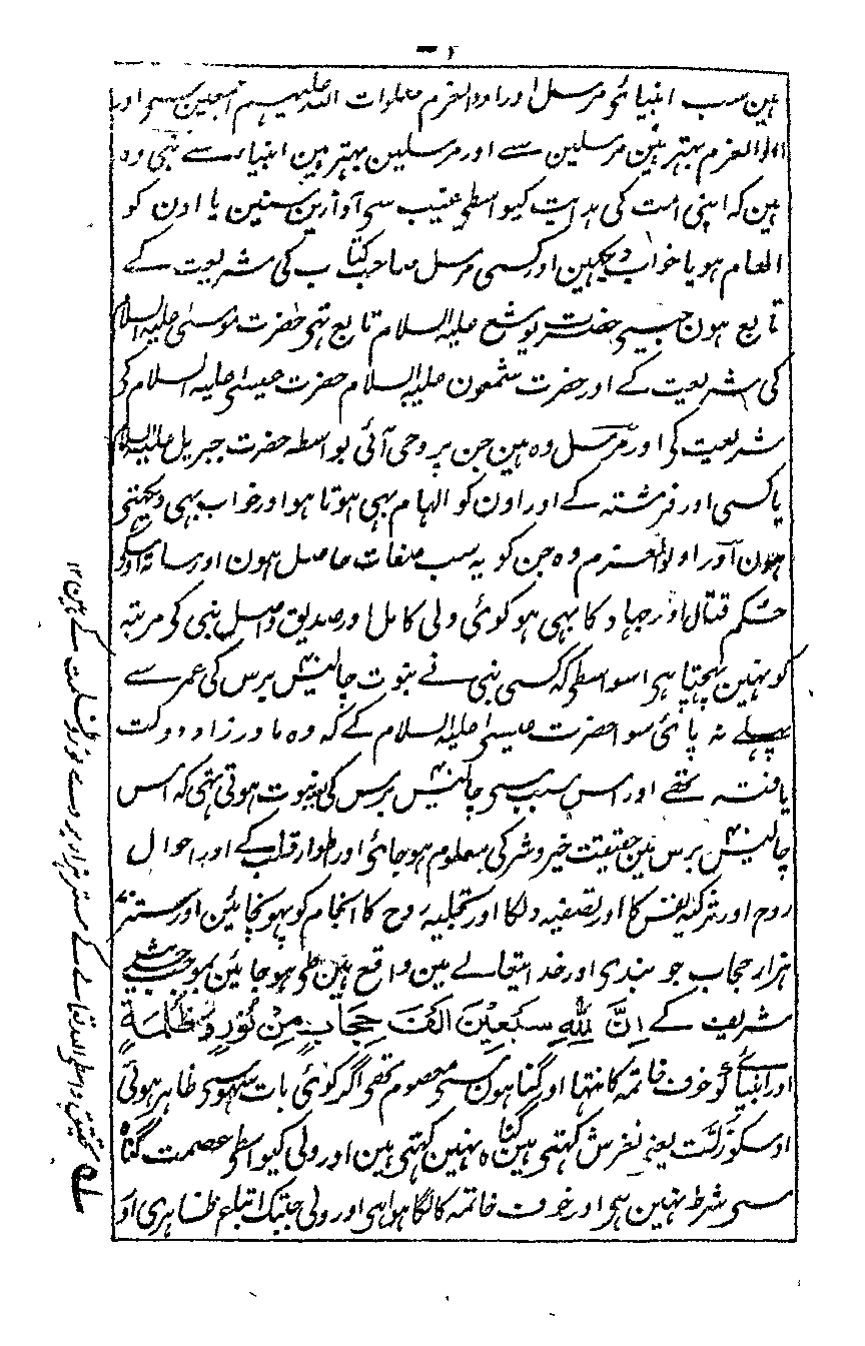 ۲
ہین سب انبیائی مرسل اور اولوالعزم صلوات اللہ علیہم اجمعین سی اور
اولوالعزم بہتر ہین مرسلین سے اور مرسلین بہتر ہین انبیاء سے نبی وہ
ہین کہ اپنی امت کی ہدایت کیواسطی غیب سی آوازین سنین یا اون کو
الہام ہو یا خواب دیکہین اور کسی مرسل صاحب کتاب کی شریعت کے
تابع ہون جیسی حضرت یوشع علیہ السلام تابع تہی حضرت موسیٰ علیہ السلام
کی شریعت کے اور حضرت شمعون علیہ السلام حضرت عیسیٰ علیہ السلام کی
شریعت کی اور مرسل وہ ہین جن پر وحی آئی بواسطہ حضرت جبریل علیہ السلام
یا کسی اور فرشتہ کے اور اون کو الہام بہی ہوتا ہو اور خواب بہی دیکہتی
ہون اور اولوالعزم وہ جن کو یہ سب صفات حاصل ہون اور ساتہ اوسکی
حکم قتال اور جہاد کا بہی ہو کوئی ولی کامل اور صدیق واصل نبی کی مرتبہ
کو نہین پہنچتا ہی اسواسطی کہ کسی نبی نے نبوت چالیس ۴۰ برس کی عمر سے
پہلے نہ پائی سوا حضرت عیسیٰ علیہ السلام کے کہ وہ مادرزاد دولت
یافتہ تھے اور اس سبب سی چالیس ۴۰ برس کی نبوت ہوتی تہی کہ اس
چالیس ۴۰ برس مین حقیقت خیر و شر کی معلوم ہو جائی اور اطوار قلب کے اور احوال
روح اور تزکیہ نفس کا اور تصفیہ دلکا اور تجلیہ روح کا انجام کو پہونچائین اور ستر
ہزار حجاب جو بندی اور خدایتعالے مین واقع ہین طی ہو جائین بموجب حدیث
شریف کے اِنَّ لِلّٰهِ سَبْعِيْنَ اَلْفَ حِجَابٍ مِنْ نُوْرٍ وَظُلْمَةٍ
اور انبیائے کو خوف خاتمہ کا نتہا اور گناہون سی معصوم تھی اگر کوئی بات سہو سی ظاہر ہوئی
اوسکو زلّت یعنی لغزش کہتی ہین گناہ نہین کہتی ہین اور ولی کیواسطی عصمت گناہ
سی شرط نہین ہی اور خوف خاتمہ کا لگا ہوا ہی اور ولی جبتک اتباع ظاہری او
تحقیق واسطی اللہ تعالے کے ستر ہزار پردے نور و ظلمت کے ہین ۱۲